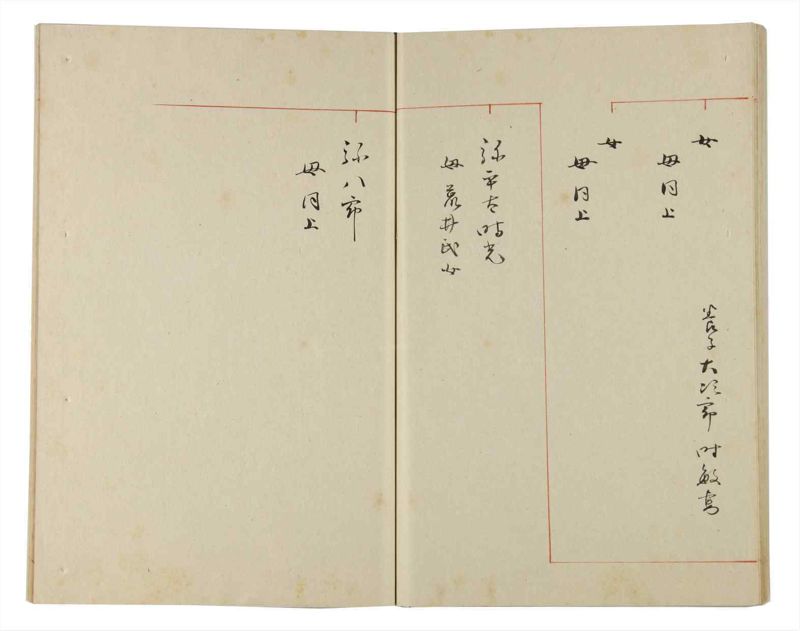 女
母同上
養子大次郎時敏妻
女
母同上
弥平太時光
母荒井氏女
弥八郎
母同上